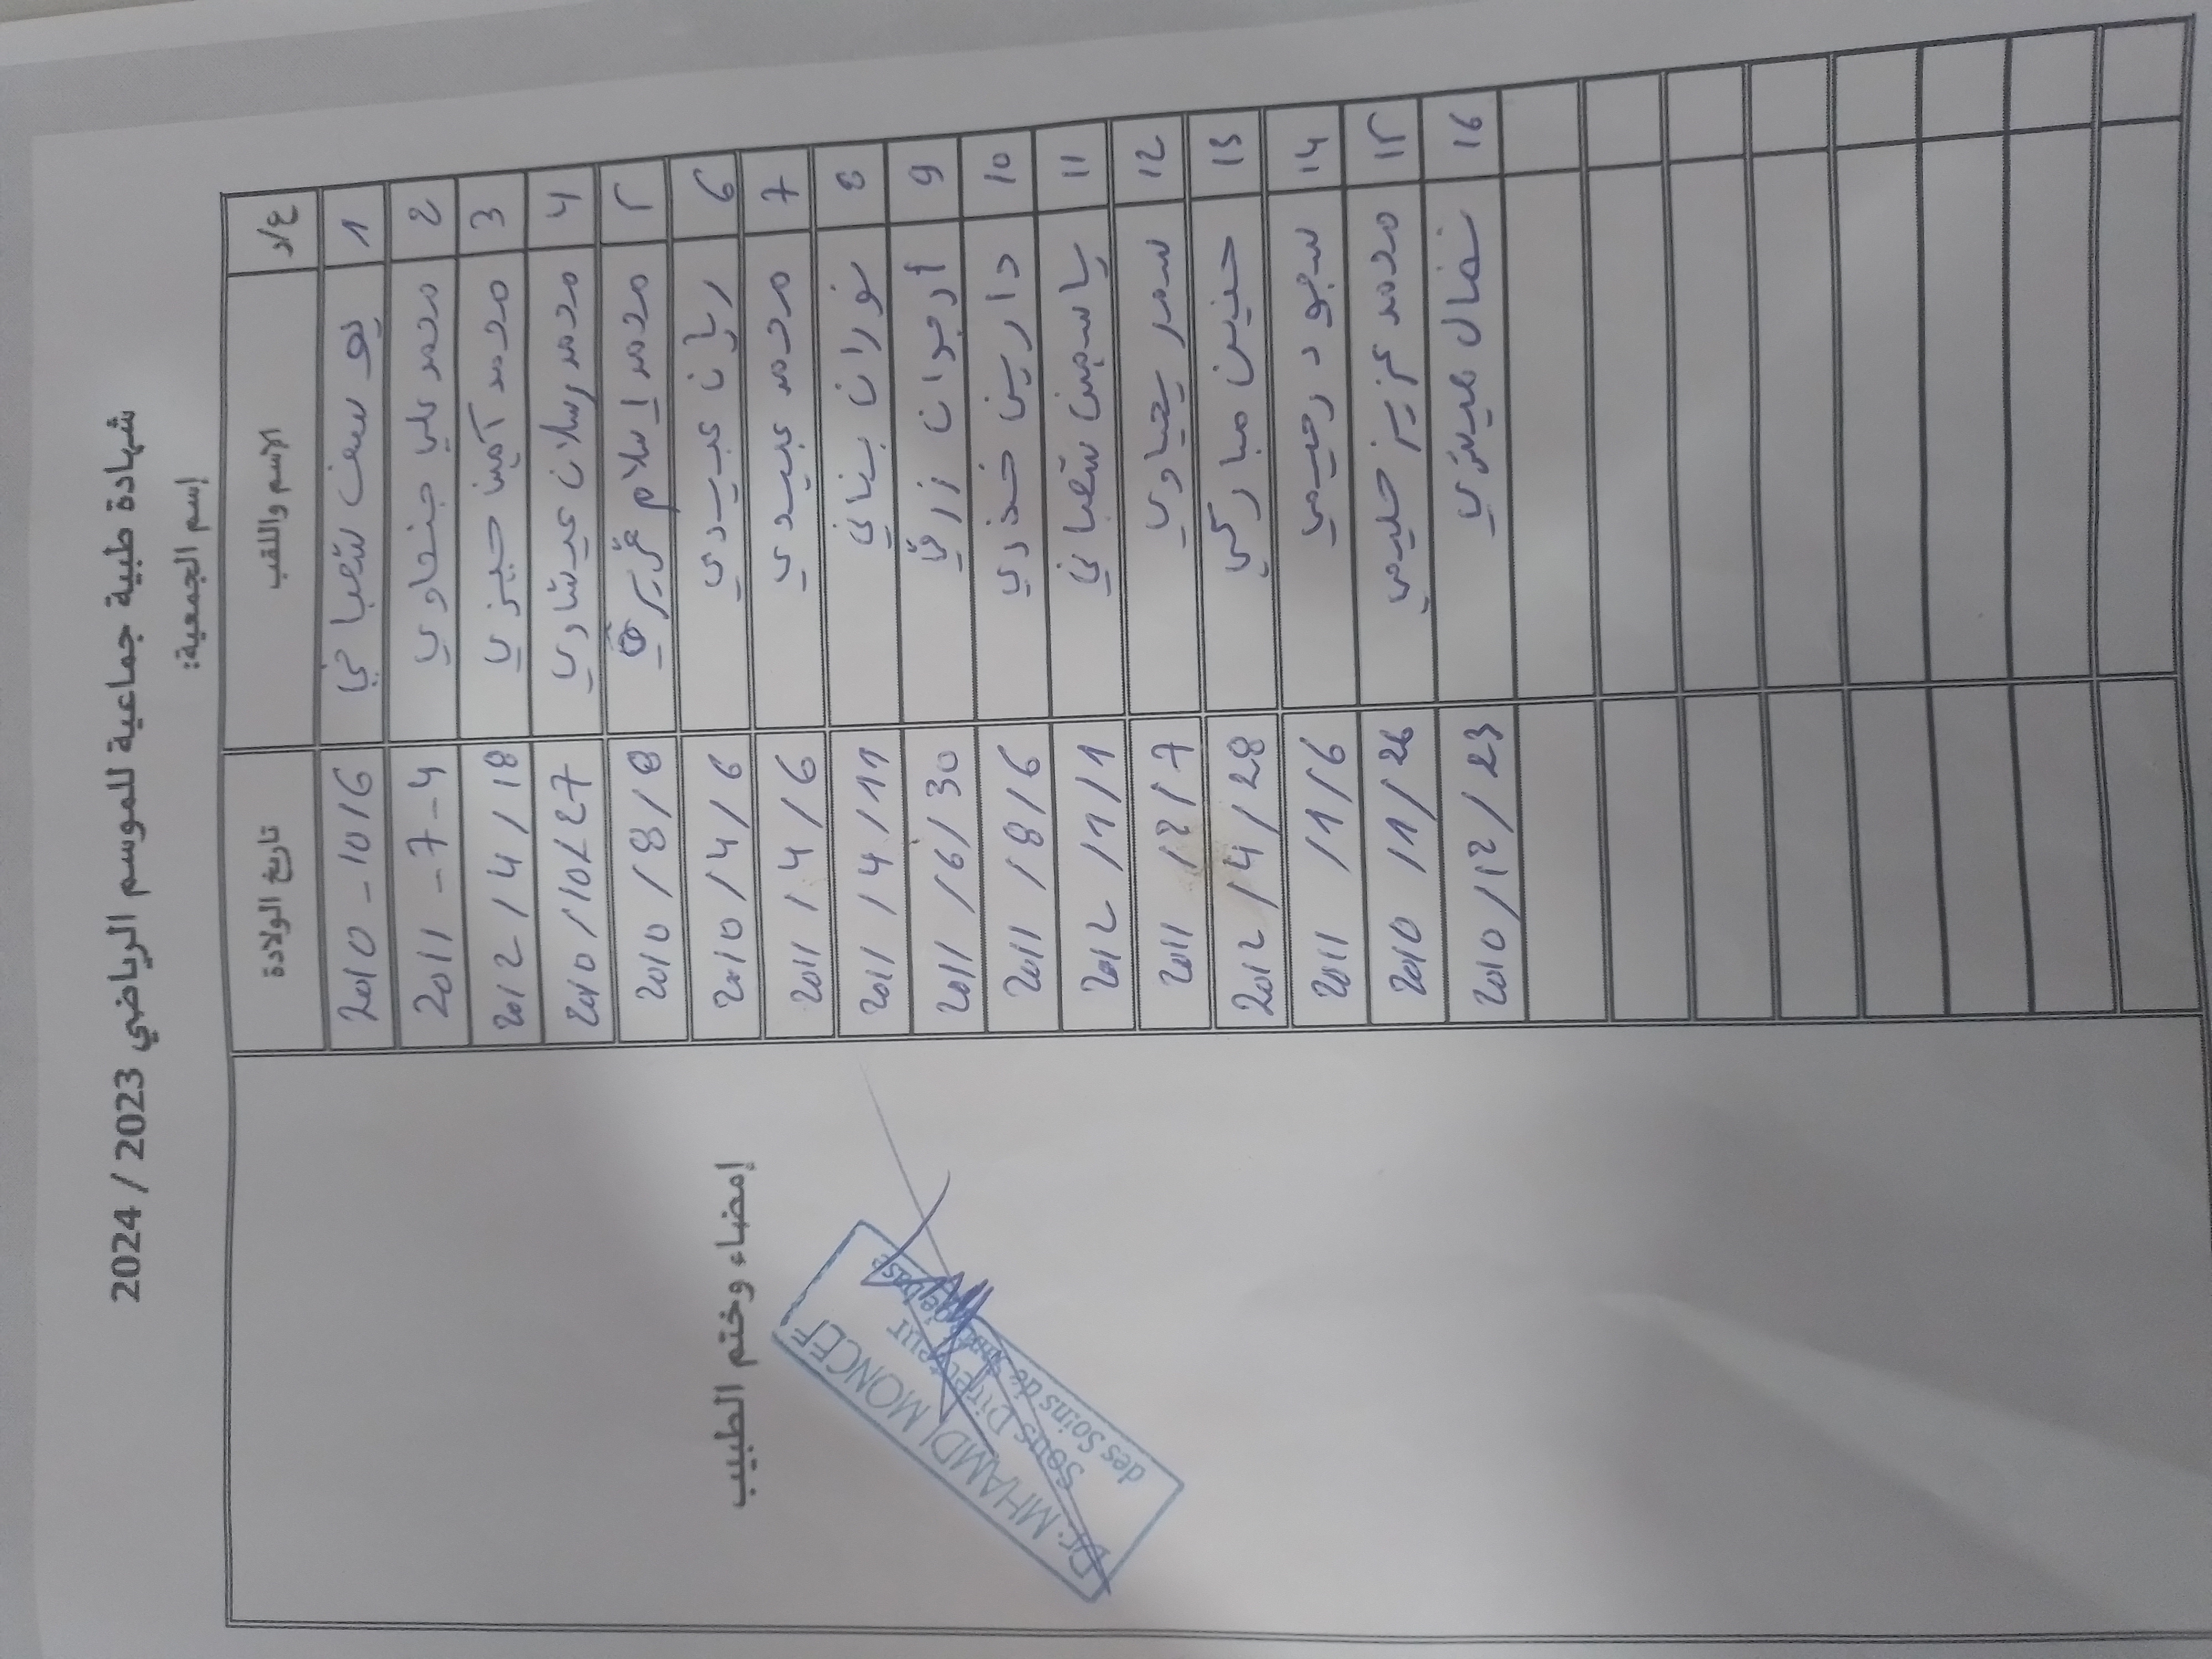 شهادة طبية جماعية للموسم الرياضي 2023 / 2024
إسم الجمعية:
ع/د الاسم واللقب تاريخ الولادة
1 يوسف شعباني 2010 - 10/6
2 محمد علي جنحاوي 2011 - 7 - 4
3 محمد أمين حيزي 2012 / 4 / 18
4 محمد رسلان عيشاوي 2010 / 10 / 27
5 محمد إسلام 2010 / 8 / 8
6 ريان عبيدي 2010 / 4 / 6
7 محمد عبيدي 2011 / 4 / 6
8 نوران بناني 2011 / 4 / 11
9 أرجوان زرقي 2011 / 6 / 30
10 دارين خذري 2011 / 8 / 6
11 ياسمين شعباني 2012 / 1 / 1
12 سمر يحياوي 2011 / 2 / 7
13 حنين مباركي 2012 / 4 / 28
14 سجود رحيمي 2011 / 1 / 6
15 محمد عزيز حليمي 2010 / 1 / 26
16 نضال 2010 / 12 / 23
إمضاء وختم الطبيب
Dr. MHAMDI MONCEF
Sous Directeur
des Soins de Santé de base